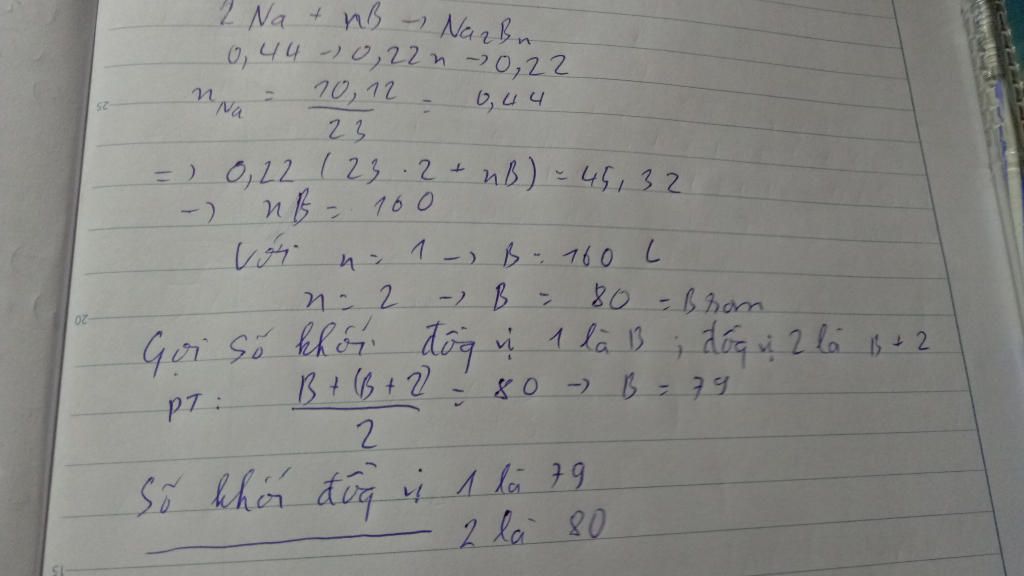 2 Na + nB → Na2Bn
0,44 → 0,22n → 0,22
nNa = 10,12 / 23 = 0,44
=) 0,22 (23 . 2 + nB) = 45,32
→ nB = 160
Với n = 1 → B = 160 L
n = 2 → B = 80 = Brom
Gọi số khối đồg vị 1 là B ; đồg vị 2 là B + 2
PT : B + (B + 2) / 2 = 80 → B = 79
Số khối đồg vị 1 là 79
2 là 80
25
20
15